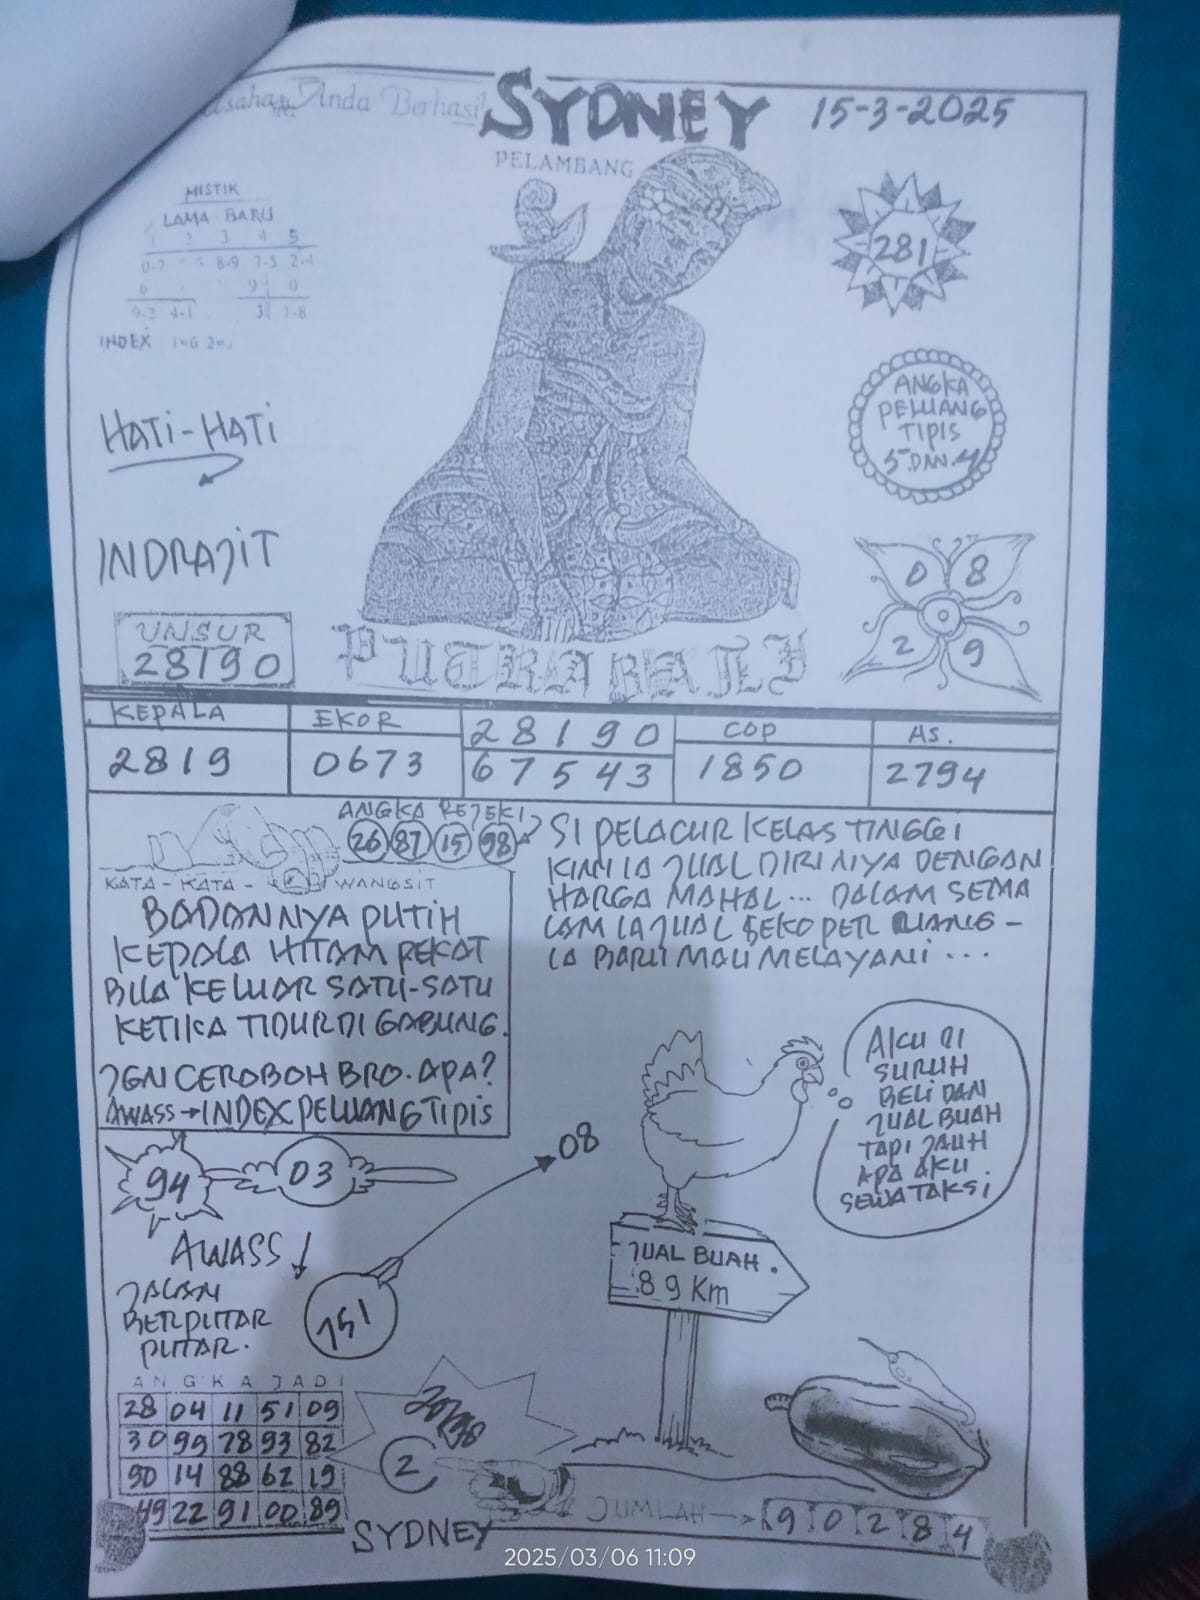 Anda Berhasil
SYDNEY
15-3-2025
PELAMBANG
MISTIK
LAMA BARU
8-9 7-5 2-4
9-2 4-1 3 1-8
INDEX 1=6
281
HATI-HATI
ANGKA
PELUANG
TIPIS
5 DAN 4
INDRAJIT
0 8
2 9
UNSUR
28190
PUTRA BALI
KEPALA
2819
EKOR
0673
28190
67543
COP
1850
AS.
2794
ANGKA REJEKI
26 87 15 98
KATA-KATA- WANGSIT
BADANNYA PUTIH
KEPALA HITAM PEKAT
BILA KELUAR SATU-SATU
KETIKA TIDUR DI GABUNG.
JGN CEROBOH BRO. APA?
AWASS→INDEX PELUANG TIPIS
SI PELACUR KELAS TINGGI
KINI IA JUAL DIRINYA DENGAN
HARGA MAHAL... DALAM SEMA
LAM IA JUAL SEKO PER RUANG-
IA BARU MAU MELAYANI...
AKU DI
SURUH
BELI DAN
JUAL BUAH
TAPI JAUH
APA AKU
SEWA TAKSI
94
03
08
AWASS
JALAN
BERPUTAR
PUTAR.
751
JUAL BUAH.
89 Km
ANGKA JADI
28 04 11 51 09
30 99 78 93 82
90 14 88 62 19
49 22 91 00 89
2
JUMLAH→ 9 0 2 8 4
SYDNEY
2025/03/06 11:09